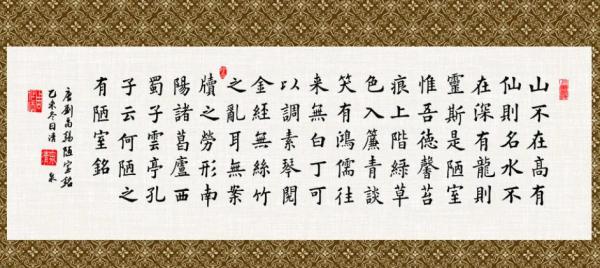 山不在高有
仙則名水不
在深有龍則
靈斯是陋室
惟吾德馨苔
痕上階綠草
色入簾青談
笑有鴻儒往
来無白丁可
以調素琴閱
金経無絲竹
之亂耳無案
牘之勞形南
陽諸葛廬西
蜀子雲亭孔
子云何陋之
有陋室銘
唐劉禹錫陋室銘
乙未冬月清泉